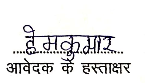 हेमकुमार
आवेदक के हस्ताक्षर